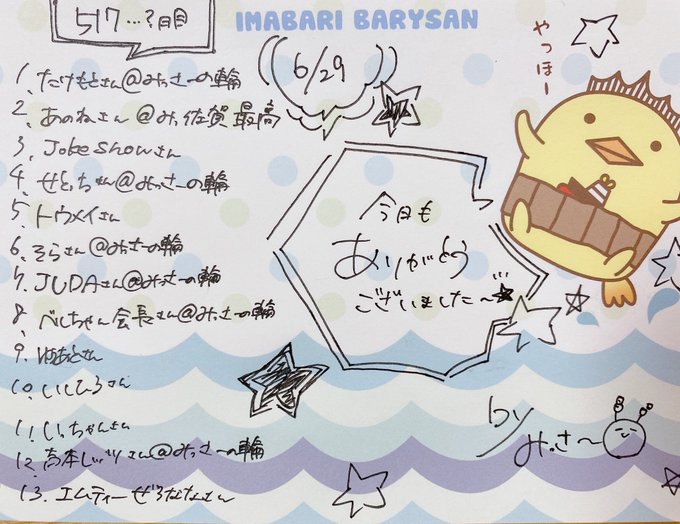 517...?日目
IMABARI BARYSAN
やっほー
6/29
1、たけもとさん@みっさーの輪
2、あのねさん@みっ佐賀最高
3、Jobeshowさん
4、せとっちゃん@みっさーの輪
5、トウメイさん
6、そらさん@みっさーの輪
7、JUDAさん@みっさーの輪
8、べしちゃん会長さん@みっさーの輪
9、さん
10、いしひろさん
11、いっちゃんさん
12、高本さん@みっさーの輪
13、エムティーぜろななさん
今日も
ありがとう
ございました〜
by
みっさ〜